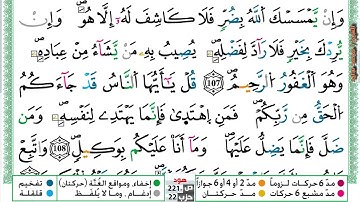 وَإِن يَمْسَسْكَ ٱللَّهُ بِضُرٍّ فَلَا كَاشِفَ لَهُۥٓ إِلَّا هُوَ ۖ وَإِن
يُرِدْكَ بِخَيْرٍ فَلَا رَآدَّ لِفَضْلِهِۦ ۚ يُصِيبُ بِهِۦ مَن يَشَآءُ مِنْ عِبَادِهِۦ ۚ
وَهُوَ ٱلْغَفُورُ ٱلرَّحِيمُ ﴿107﴾ قُلْ يَٰٓأَيُّهَا ٱلنَّاسُ قَدْ جَآءَكُمُ
ٱلْحَقُّ مِن رَّبِّكُمْ ۖ فَمَنِ ٱهْتَدَىٰ فَإِنَّمَا يَهْتَدِى لِنَفْسِهِۦ ۖ وَمَن
ضَلَّ فَإِنَّمَا يَضِلُّ عَلَيْهَا ۖ وَمَآ أَنَا۠ عَلَيْكُم بِوَكِيلٍ ﴿108﴾ وَٱتَّبِعْ
مدّ 6 حركات لزوماً مدّ 2 أو 4 أو 6 جوازاً هود ص 221 إخفاء، ومواقع الغُنَّة (حركتان) تفخيم
مدّ مشبع 6 حركات مدّ حركتان حزب 22 إدغام، وما لا يُلفَظ قلقلة